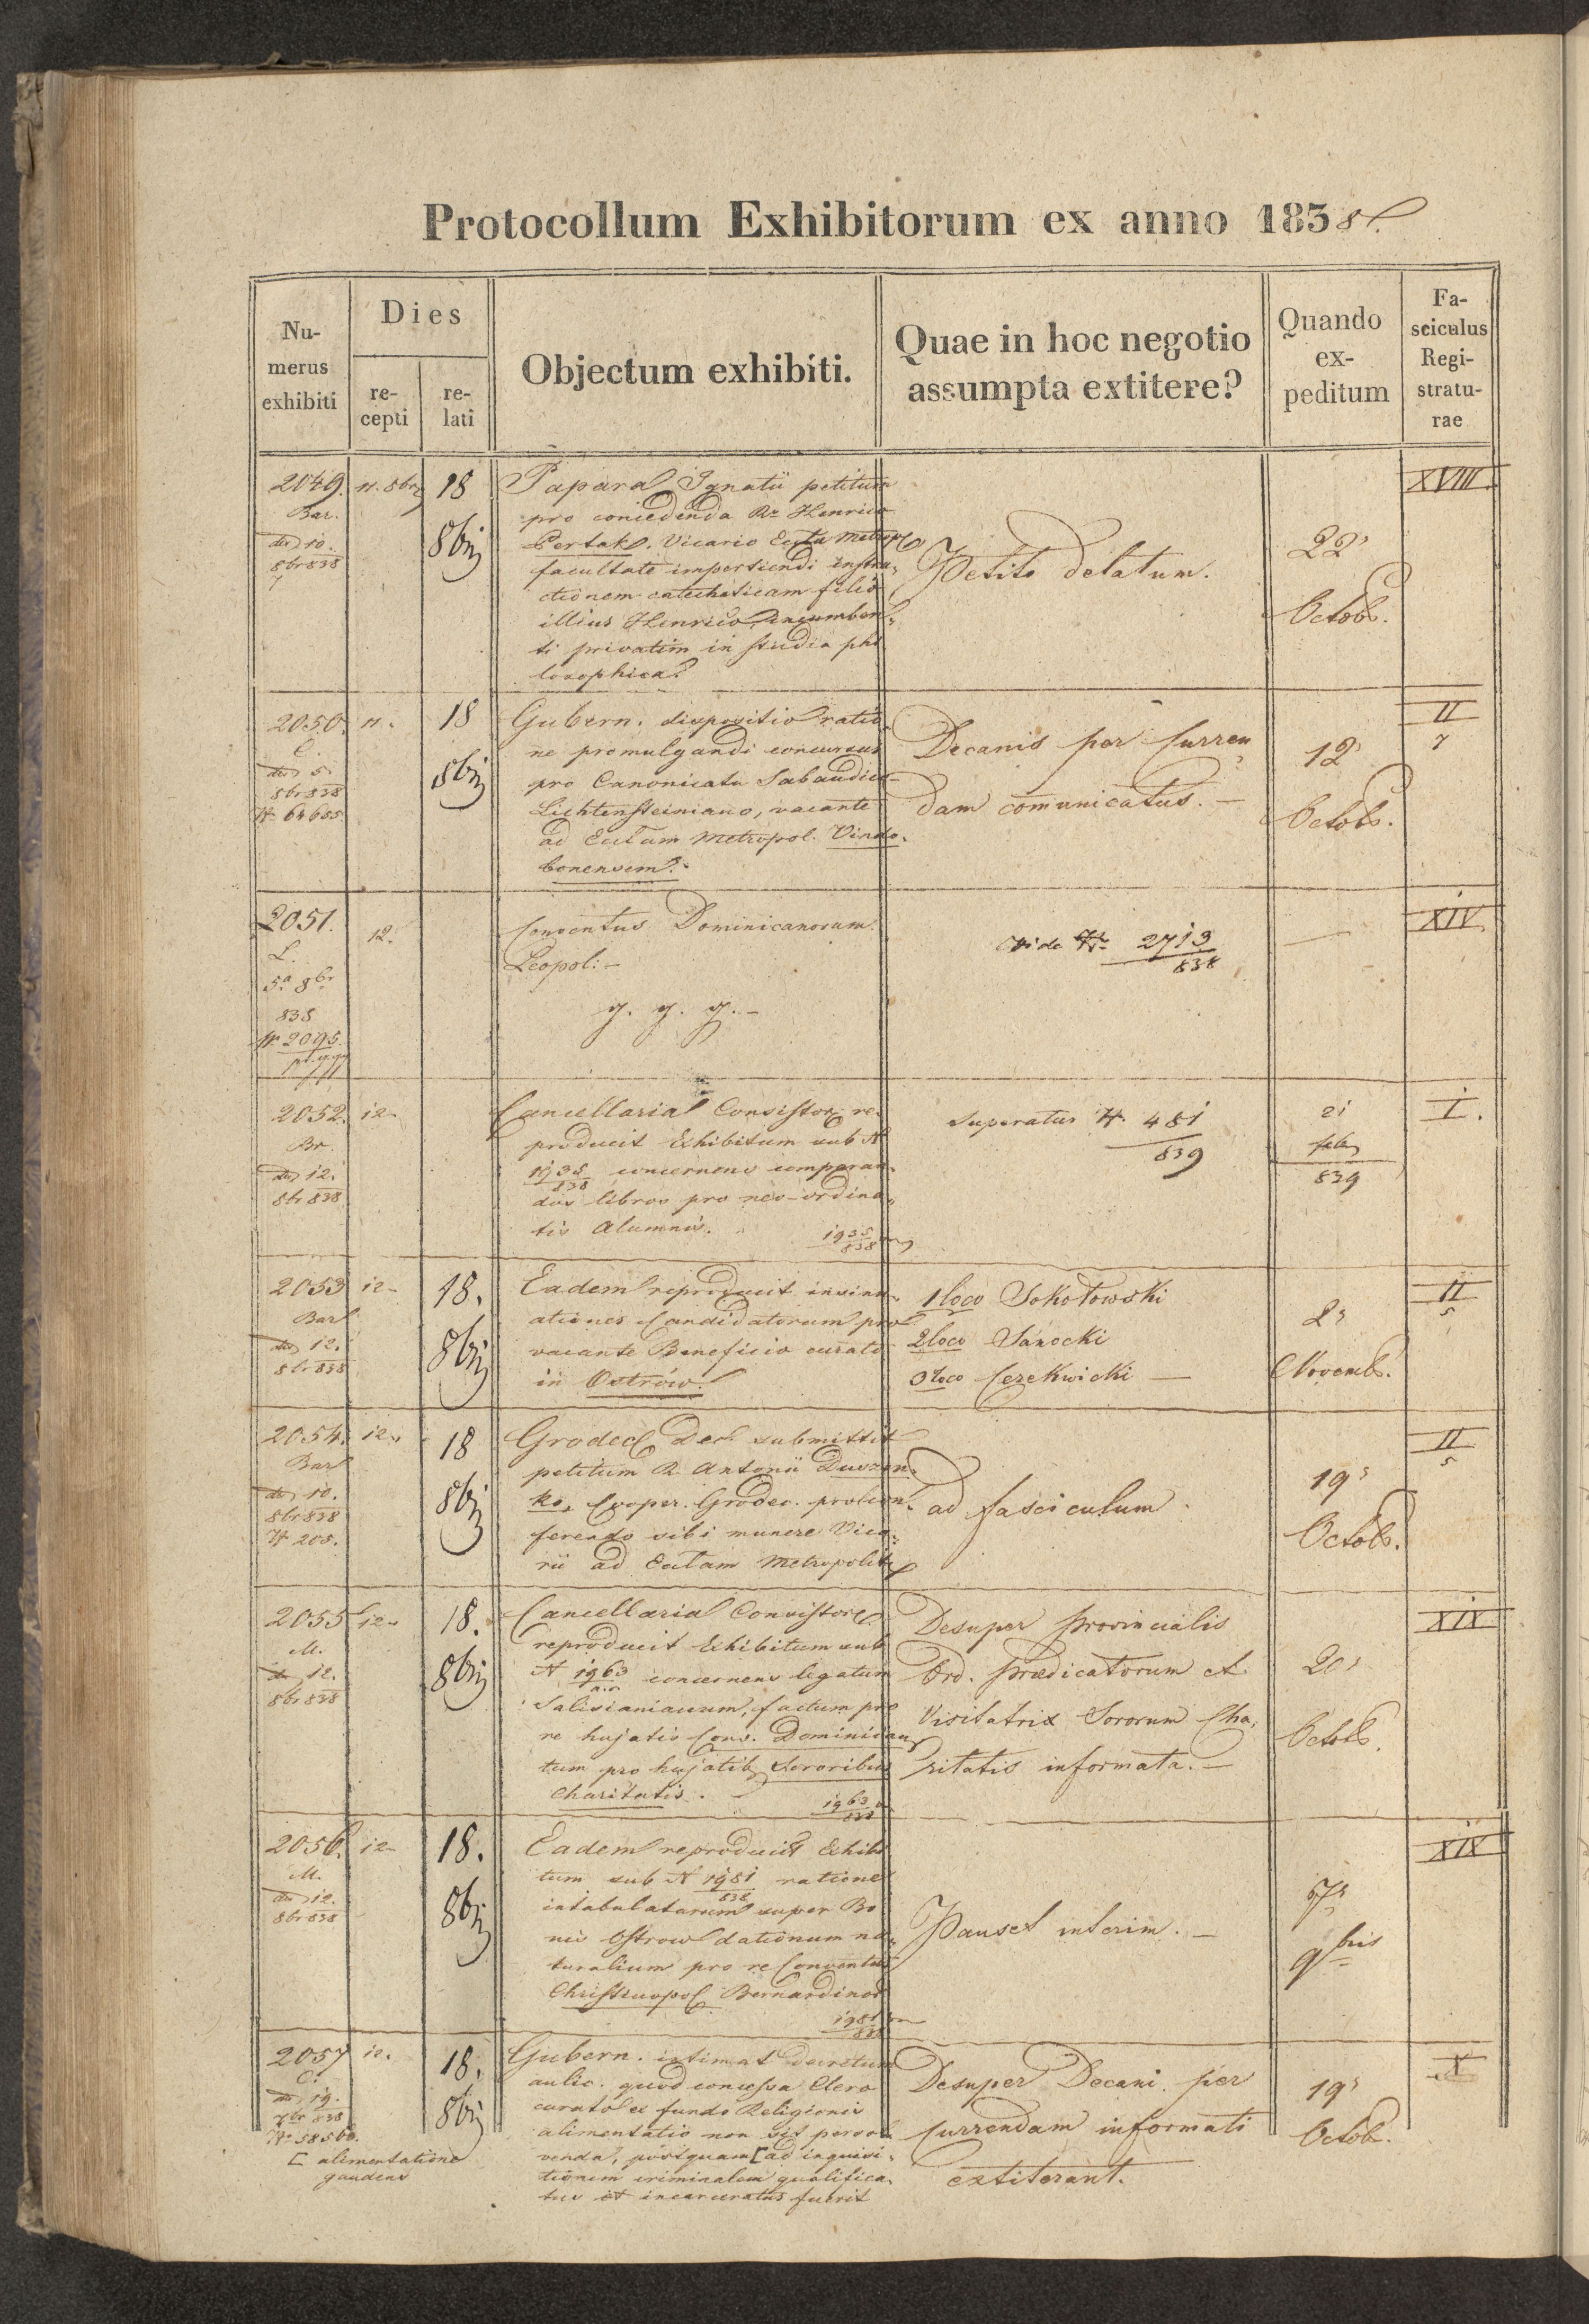 Protocollum Exhibitorum ex anno 1838.
Nu-
merus
exhibiti
Dies
re-
cepti
re-
lati
Objectum exhibiti.
Quae in hoc negotio
assumpta extitere?
Quando
ex-
peditum
Fa-
sciculus
Regi-
stratu-
rae
2049.
Bar.
10.
8br 838
11. 8br
18
8bris
Papara Ignatii petitum
pro concedenda Rr Henrico
Pertak. Vicario Ecclae Metropol
facultate impertiendi instru-
ctionem catecheticam filio
illius Henrico, incumben-
ti privatim in studia phi
losophica.
Petito delatum.
22a
Octob.
XVIII.
2050.
C.
5
8br 838
N 64655
11.
18
8bris
Gubern. dispositio ratio
ne promulgandi concursus
pro Canonicatu Sabaudico
Lichtensteiniano, vacante
ad Ecclam Metropol. Vindo-
bonensem.
Decanis per Curren
dam comunicatus. —
12a
Octob.
II
7
2051.
L.
5a 8br
838
N. 2095.
12.
Conventus Dominicanorum
Leopol: —
g. g. g. —
Vide N 2713
838
—
XIV.
2052.
Br.
12.
8br 838
12.
Cancellaria Consistor. re-
producit Exhibitum sub N
1935
838 concernens comparan-
dos libros pro neo-ordina-
tis Alumnis.
1935
838
Superatus N. 481
839
21
febr
839
I.
2053
Bar
12.
8br 838
12.
18.
8bris
Eadem reproducit insinu-
ationes Candidatorum pro
vacante Beneficio curato
in Ostrów.
1 loco Sokołowski
2 loco Sanocki
3 loco Czekwicki —
2a
Novemb.
II
5
2054.
Bar
10.
8br 838
N 205.
12.
18
8bris
Grodec Dec. submittit
petitum R. Antonii Duszen-
ko, Cooper. Grodec. pro con-
ferendo sibi munere Vica-
rii ad Ecclam Metropolit
ad fasciculum.
19a
Octob.
II
5
2055
M.
12.
8br 838
12.
18.
8bris
Cancellaria Consistor.
reproducit Exhibitum sub
N 1963
a.c. concernens legatum
Salisianianum, factum pro
re hujatis Conv. Dominican
tum pro hujatib Sororibus
Charitatis.
1963
838
Desuper Provincialis
Ord. Praedicatorum et
Visitatrix Sororum Cha-
ritatis informata. —
20a
Octob.
XIX
2056.
M.
12.
8br 838
12.
18.
8bris
Eadem reproducit Exhibi
tum sub N 1981
838 ratione
intabulatarum super Bo
nis Ostrow dationum na-
turalium pro re Conventus
Christinopol. Bernardinor
1981
838
Pauset interim. —
9bris
XIX
2057
C.
19.
7br 838
N 58560.
[ alimentatione
gaudens
12.
18.
8bris
Gubern. intimat Decretum
aulic. quod concessa Clero
curato ex fundo Religionis
alimentatio non sit persol
venda, postquam [ad inquisi-
tionem criminalem qualifica-
tus et incarceratus fuerit
Desuper Decani per
Currendam informati
extiterant.
19a
Octob.
X